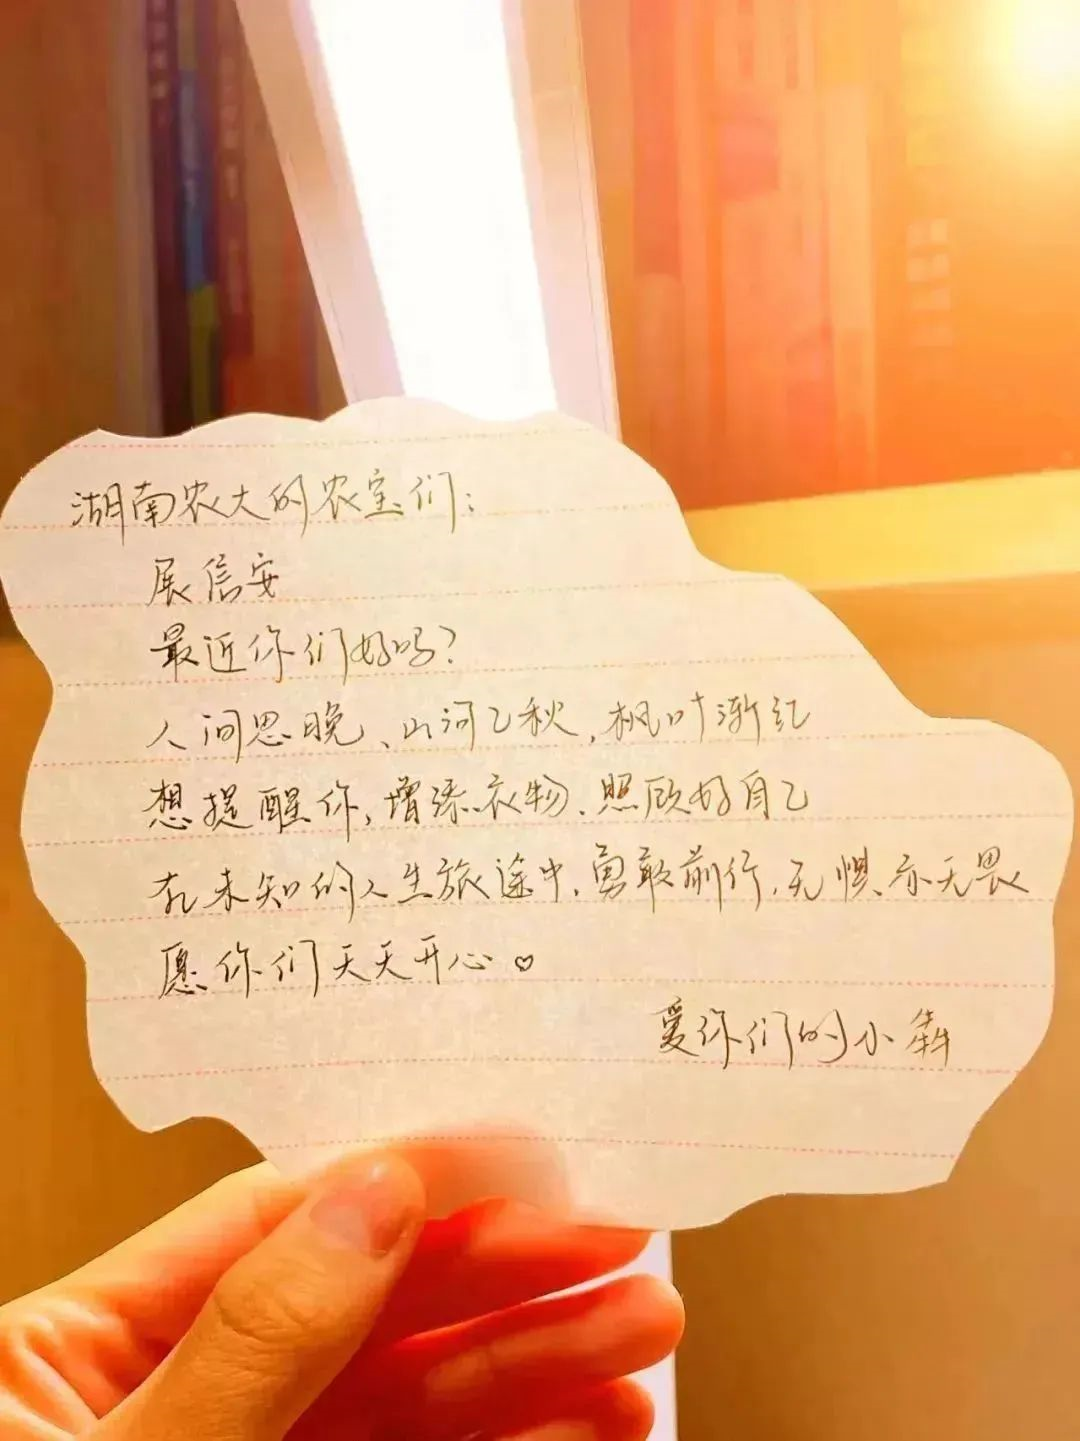 湖南农大的农宝们：
展信安
最近你们好吗？
人间思晚、山河已秋，枫叶渐红
想提醒你，增添衣物、照顾好自己
在未知的人生旅途中，勇敢前行，无惧亦无畏
愿你们天天开心♡
爱你们的小犇